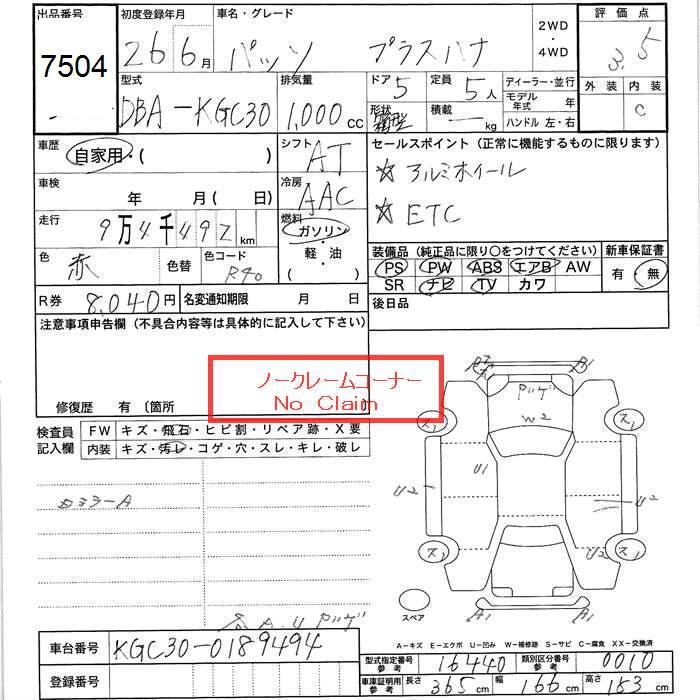 出品番号 初度登録年月 車名・グレード 2WD ・ 4WD 評価点
7504 26 6月 パッソ プラスハナ 3.5
型式 排気量 ドア 5 定員 5人 ディーラー・並行 外装 内装
DBA-KGC30 1,000cc 形状 箱型 積載 ― kg モデル年式 年 C
ハンドル 左・右
車歴 自家用・( ) シフト AT セールスポイント(正常に機能するものに限ります)
車検 年 月(日) 冷房 AAC ☆アルミホイール
走行 9万4千492km 燃料 ガソリン・軽・油 ( ) ☆ETC
色 赤 色替 色コード R40 装備品(純正品に限り○をつけてください) 新車保証書
PS PW ABS エアB AW 有・無
SR ナビ TV カワ
R券 8,040円 名変通知期限 月 日 後日品
注意事項申告欄(不具合内容等は具体的に記入して下さい)
ノークレームコーナー
No Claim
修復歴 有 〔箇所
検査員記入欄 FW キズ・飛石・ヒビ割・リペア跡・X要
内装 キズ・汚レ・コゲ・穴・スレ・キレ・破レ
A1
W2
ス1 ス1
U1
U2 U2
U2
ス1 ス1
スペア A1 A1
車台番号 KGC30-0189494
A-キズ E-エクボ U-凹み W-補修跡 S-サビ C-腐食 XX-交換済
型式指定番号 参考 16440 類別区分番号 参考 0010
登録番号
車庫証明用 参考 長さ 365cm 幅 166cm 高さ 153cm